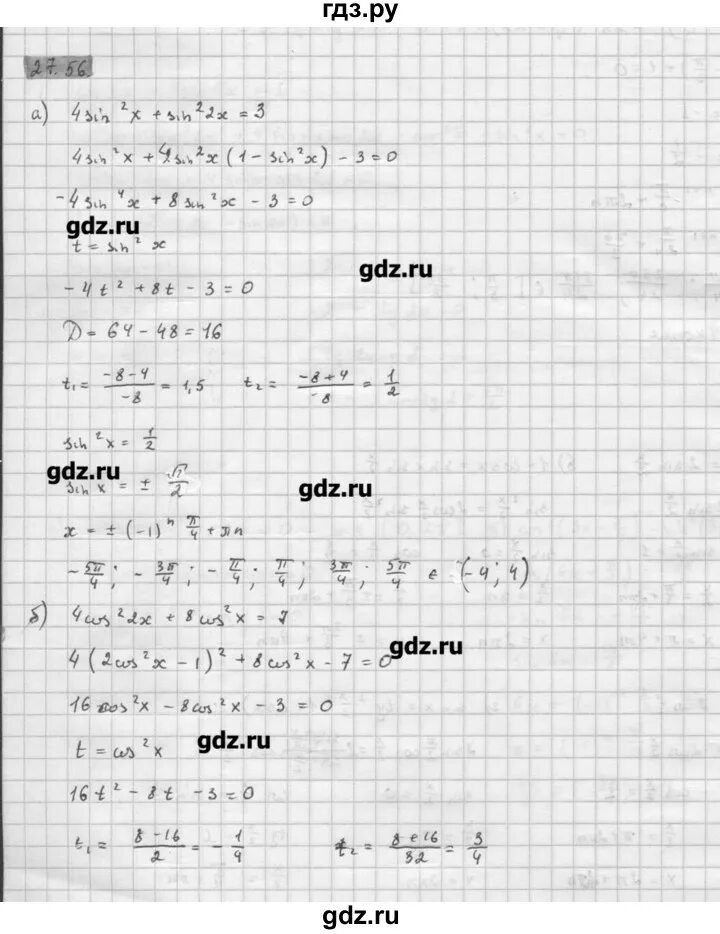 гдз.ру
27.56.
а) 4sin²x + sin²2x = 3
4sin²x + 4sin²x(1 - sin²x) - 3 = 0
-4sin⁴x + 8sin²x - 3 = 0
gdz.ru
t = sin²x
gdz.ru
-4t² + 8t - 3 = 0
D = 64 - 48 = 16
t₁ = (-8-4)/(-8) = 1,5 t₂ = (-8+4)/(-8) = 1/2
sin²x = 1/2
gdz.ru
sin x = ± √2/2
gdz.ru
x = ± (-1)ⁿ π/4 + πn
-5π/4; -3π/4; -π/4; π/4; 3π/4; 5π/4 ∈ (-4; 4)
б) 4cos²2x + 8cos²x = 7
gdz.ru
4(2cos²x - 1)² + 8cos²x - 7 = 0
16cos²x - 8cos²x - 3 = 0
gdz.ru
t = cos²x
16t² - 8t - 3 = 0
t₁ = (8-16)/2 = -1/4 t₂ = (8+16)/32 = 3/4
gdz.ru